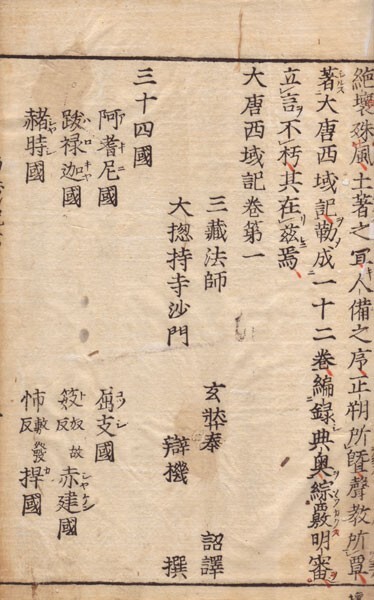 絶壤殊風土著之冝人備之序正朔所曁聲教所覃
著大唐西域記勒成一十二巻編録典奥綜覈明審
立言不朽其在茲焉
大唐西域記巻第一
三藏法師 玄奘奉 詔譯
大揔持寺沙門 辯機 撰
三十四國
阿耆尼國 屈支國
跋禄迦國 笯奴故反赤建國
赭時國 㤄敷發反捍國